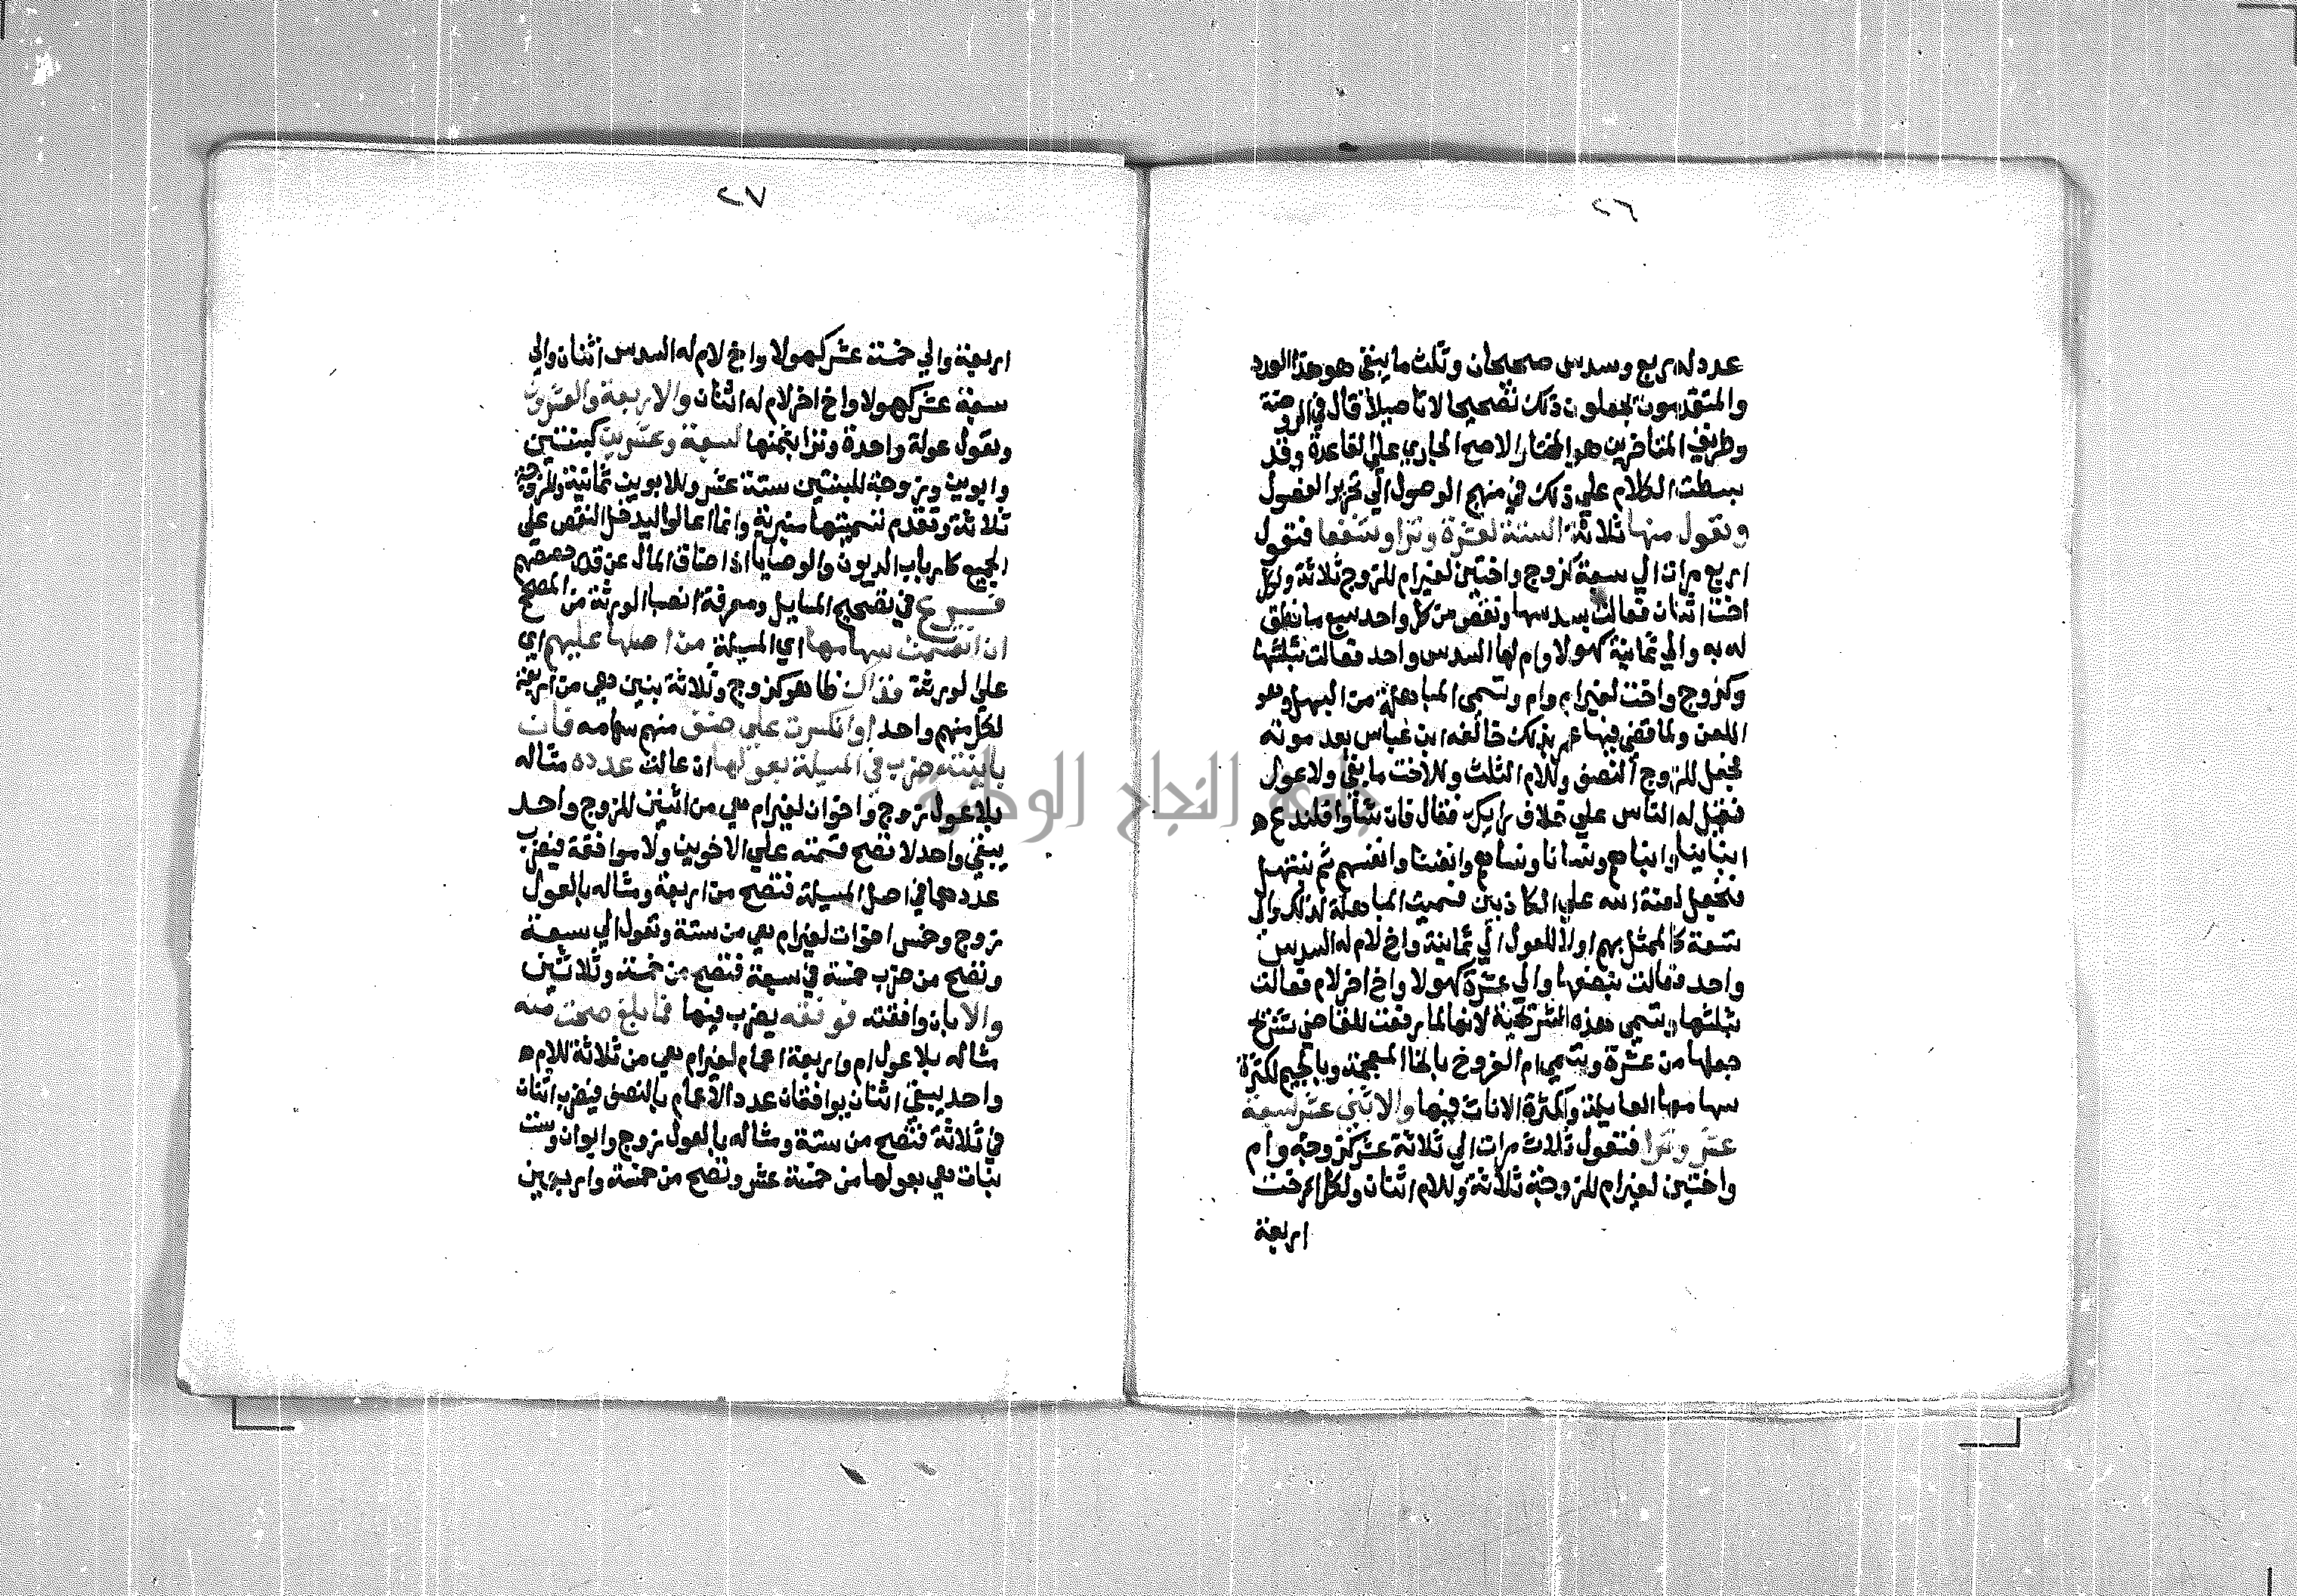 ٢٦
عدد له ربع وسدس صحيحان وثلث ما يبقى هو هذا الورد
والمتقدمون يجعلون ذلك تصحيحا لا تاصيلا قال في الروضة
وطريق المتاخرين هو المختار الاصح الجاري على القاعدة وقد
بسطت الكلام علي ذلك في منهج الوصول الي تحرير الفصول
وتعول منها ثلاثة الستة لعشرة وترا وشفعا فتعول
اربع مرات الي سبعة كزوج واختين لغير ام للزوج ثلاثة ولكل
اخت اثنان فعالت بسدسها ونقص من كل واحد سبع ما نطق
له به والي ثمانية كهولا وام لها السدس واحد فعالت بثلثها
وكزوج واخت لغير ام وام وتسمى المباهلة من البهل وهو
اللعن ولما قضي فيها عمر بذلك خالفه ابن عباس بعد موته
فجعل للزوج النصف وللام الثلث وللاخت ما بقي ولا عول
فقيل له الناس علي خلاف رايك فقال فان شاوا فلندع
ابناينا وابناهم ونسانا ونساهم وانفسنا وانفسهم ثم نبتهل
فنجعل لعنة الله على الكاذبين فسميت المباهلة لذلك والي
تسعة كالممثل بهم اولا للعول الي ثمانية واخ لام له السدس
واحد فعالت بنصفها والي عشرة كهولا واخ اخر لام فعالت
بثلثيها وتسمي هذه الشريحية لانها لما رفعت للقاضي شريح
جعلها من عشرة وتسمي ام الفروخ بالخا المعجمة وبالجيم لكثرة
سهامها العايلة وكثرة الاناث فيها والاثني عشر لسبعة
عشر وترا فتعول ثلاث مرات الي ثلاثة عشر كزوجة وام
واختين لغير ام للزوجة ثلاثة وللام اثنان ولكل اخت
اربعة
٢٧
اربعة والي خمسة عشر كهولا واخ لام له السدس اثنان والي
سبعة عشر كهولا واخ اخر لام له اثنان والاربعة والعشرون
وتعول عولة واحدة وترا بثمنها لسبعة وعشرين كبنتين
وابوين وزوجة للبنتين ستة عشر وللابوين ثمانية وللزوجة
ثلاثة وتقدم تسميتها منبرية وانما اعالوا ليدخل النقص علي
الجميع كارباب الديون والوصايا اذا ضاق المال عن قدر حصصهم
فروع في تصحيح المسايل ومعرفة انصبا الورثة من المصحح
ان انقسمت سهامها اي المسيلة من اصلها عليهم اي
على الورثة فذاك ظاهر كزوج وثلاثة بنين هي من اربعة
لكل منهم واحد او انكسرت علي صنف منهم سهامه فان
باينته ضرب في المسيلة بعولها ان عالت عدده مثاله
بلا عول زوج واخوان لغير ام هي من اثنين للزوج واحد
يبقي واحد لا تصح قسمته علي الاخوين ولا موافقة فيضرب
عددهما في اصل المسيلة فتصح من اربعة ومثاله بالعول
زوج وخمس اخوات لغير ام هي من ستة وتعول الي سبعة
وتصح من ضرب خمسة في سبعة فتصح من خمسة وثلاثين
والا بان وافقته فوفقه يضرب فيها فما بلغ صحت منه
مثاله بلا عول ام واربعة اعمام لغير ام هي من ثلاثة للام
واحد يبقي اثنان يوافقان عدد الاعمام بالنصف فيضرب اثنان
في ثلاثة فتصح من ستة ومثاله بالعول زوج وابوان وست
بنات هي بعولها من خمسة عشر وتصح من خمسة واربعين
جامعة النجاح الوطنية